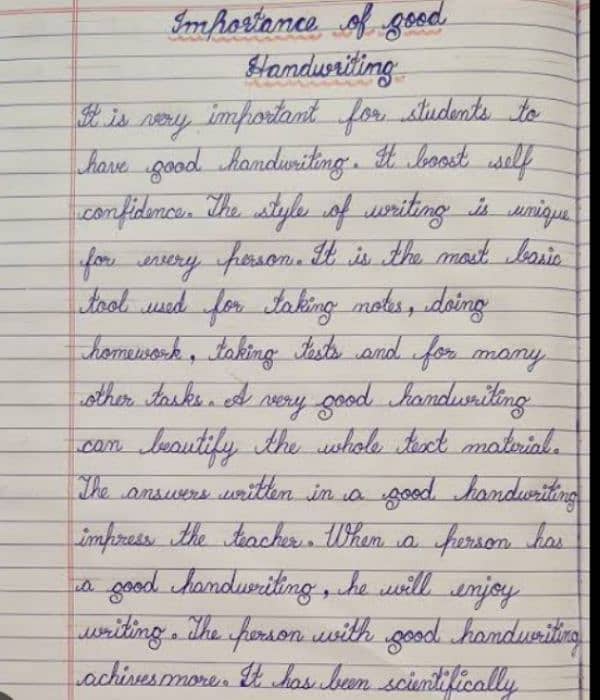 Importance of good
Handwriting
It is very important for students to
have good handwriting. It boost self
confidence. The style of writing is unique
for every person. It is the most basic
tool used for taking notes, doing
homework, taking tests and for many
other tasks. A very good handwriting
can beautify the whole text material.
The answers written in a good handwriting
impress the teacher. When a person has
a good handwriting, he will enjoy
writing. The person with good handwriting
achives more. It has been scientifically